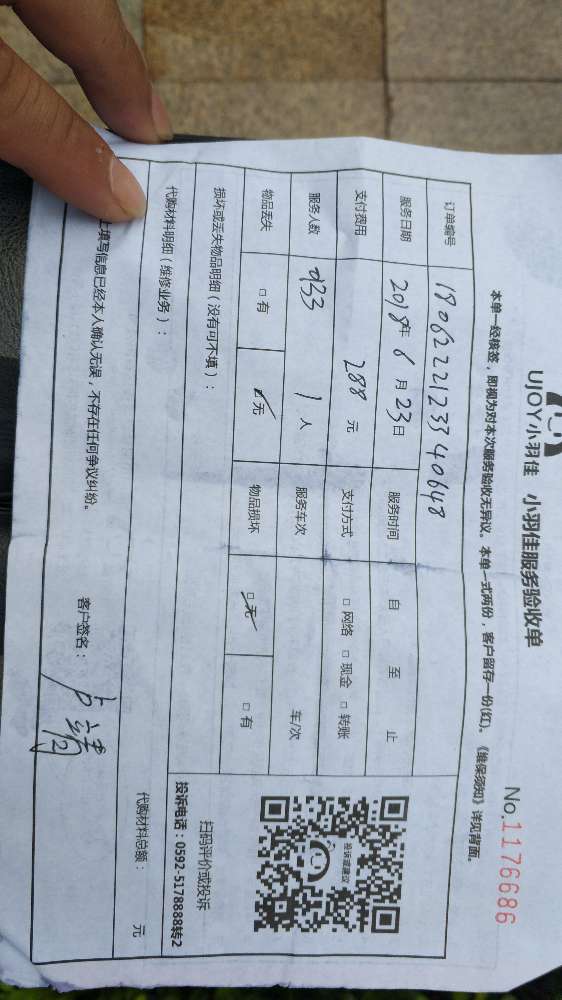 UJOY小羽佳 小羽佳服务验收单
No.1176686
本单一经核签，即视为对本次服务验收无异议。本单一式两份，客户留存一份(红)。《维保须知》详见背面。
订单编号 18062221233940648
服务日期 2018年 6 月 23 日 服务时间 自 至 止
支付费用 288 元 支付方式 □ 网络 □ 现金 □ 转账
服务人数 933 1 人 服务车次 车/次
物品丢失 □ 有 □ 无 物品损坏 □ 无 □ 有
损坏或丢失物品明细（没有可不填）：
扫码评价或投诉
投诉电话：0592-5178888转2
投诉或建议
代购材料明细（维修业务）：
代购材料总额： 元
上填写信息已经本人确认无误，不存在任何争议纠纷。
客户签名：